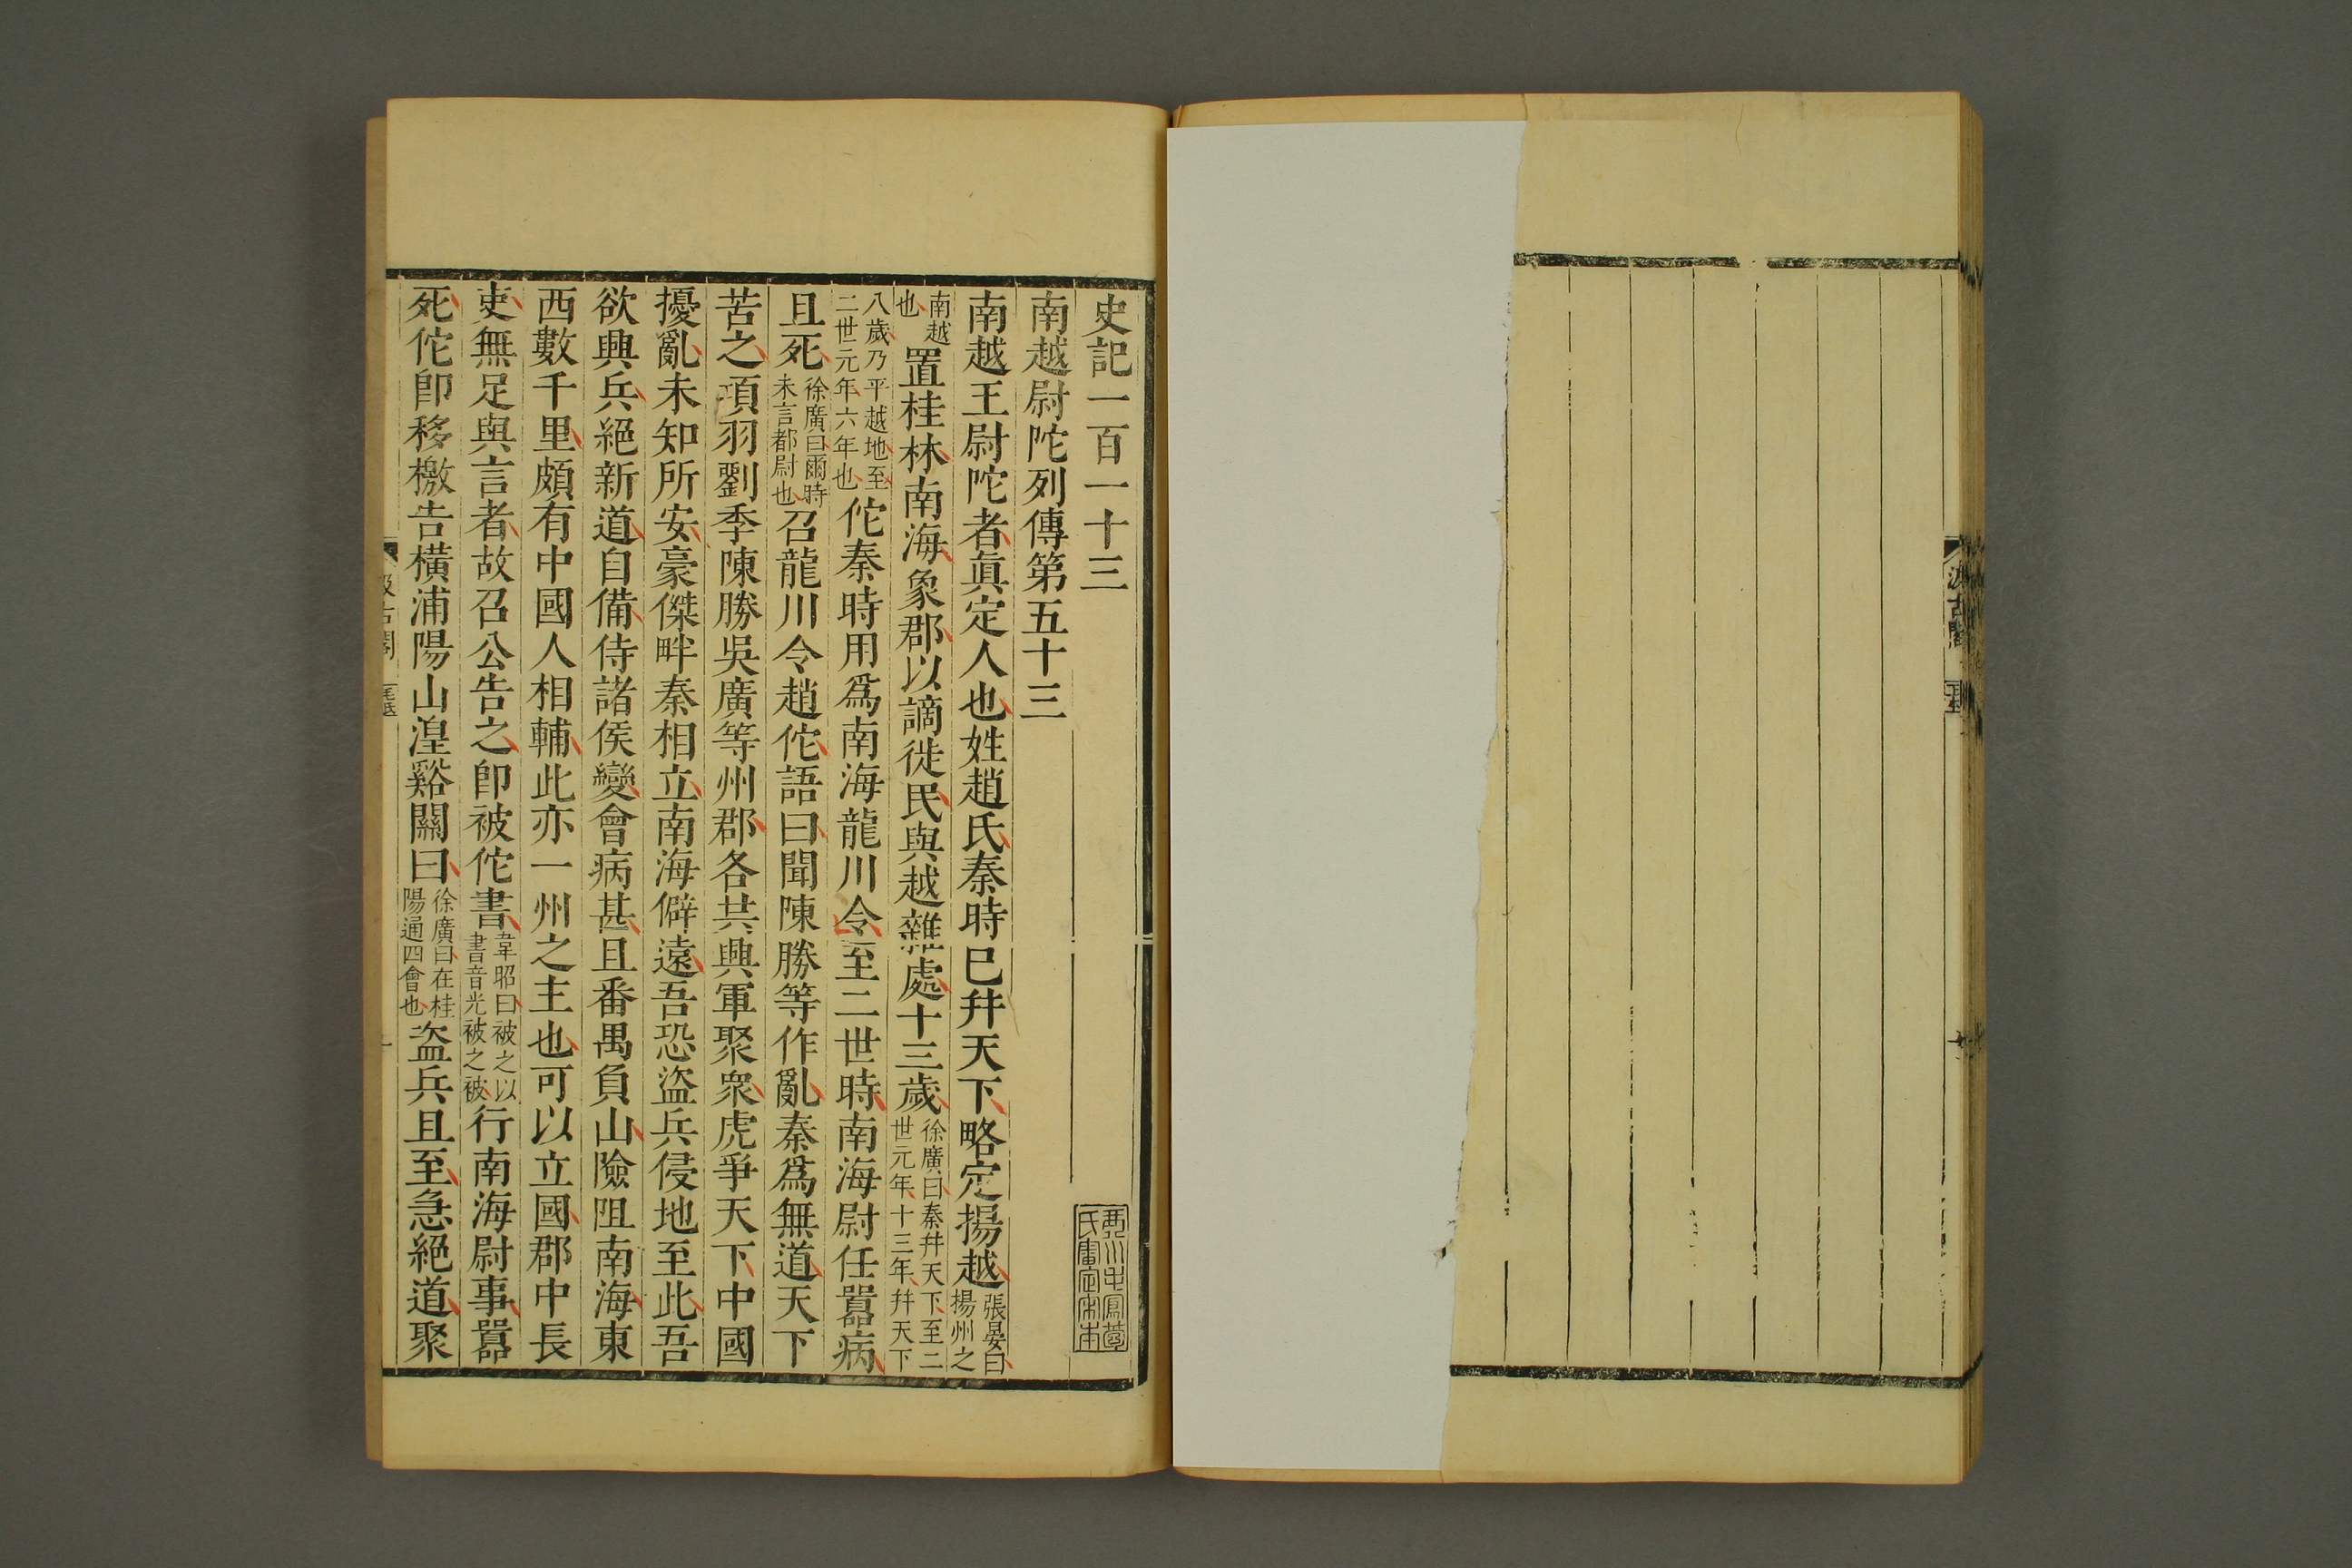 汲古閣
史記一百一十三
南越尉陀列傳第五十三
南越王尉陀者眞定人也姓趙氏秦時已幷天下略定揚越張晏曰揚州之
南越也置桂林南海象郡以謫徙民與越雜處十三歲徐廣曰秦幷天下至二世元年十三年幷天下
八歲乃平越地至二世元年六年也佗秦時用爲南海龍川令至二世時南海尉任囂病
且死徐廣曰爾時未言都尉也召龍川令趙佗語曰聞陳勝等作亂秦爲無道天下
苦之項羽劉季陳勝吳廣等州郡各共興軍聚衆虎爭天下中國
擾亂未知所安豪傑畔秦相立南海僻遠吾恐盜兵侵地至此吾
欲興兵絕新道自備侍諸侯變會病甚且番禺負山險阻南海東
西數千里頗有中國人相輔此亦一州之主也可以立國郡中長
吏無足與言者故召公告之卽被佗書韋昭曰被之以書音光被之被行南海尉事囂
死佗卽移檄告橫浦陽山湟谿關曰徐廣曰在桂陽通四會也盜兵且至急絕道聚
汲古閣